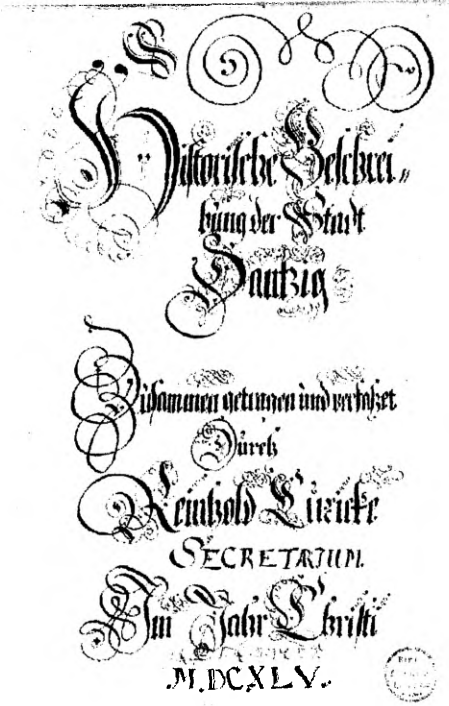 Historische Beschrei„
bung der Stadt
Dantzig
Zusammen getragen und verfaßet
Durch
Reinhold Curicke
SECRETARIUM.
Im Jahr Christi
M.DCXLV.